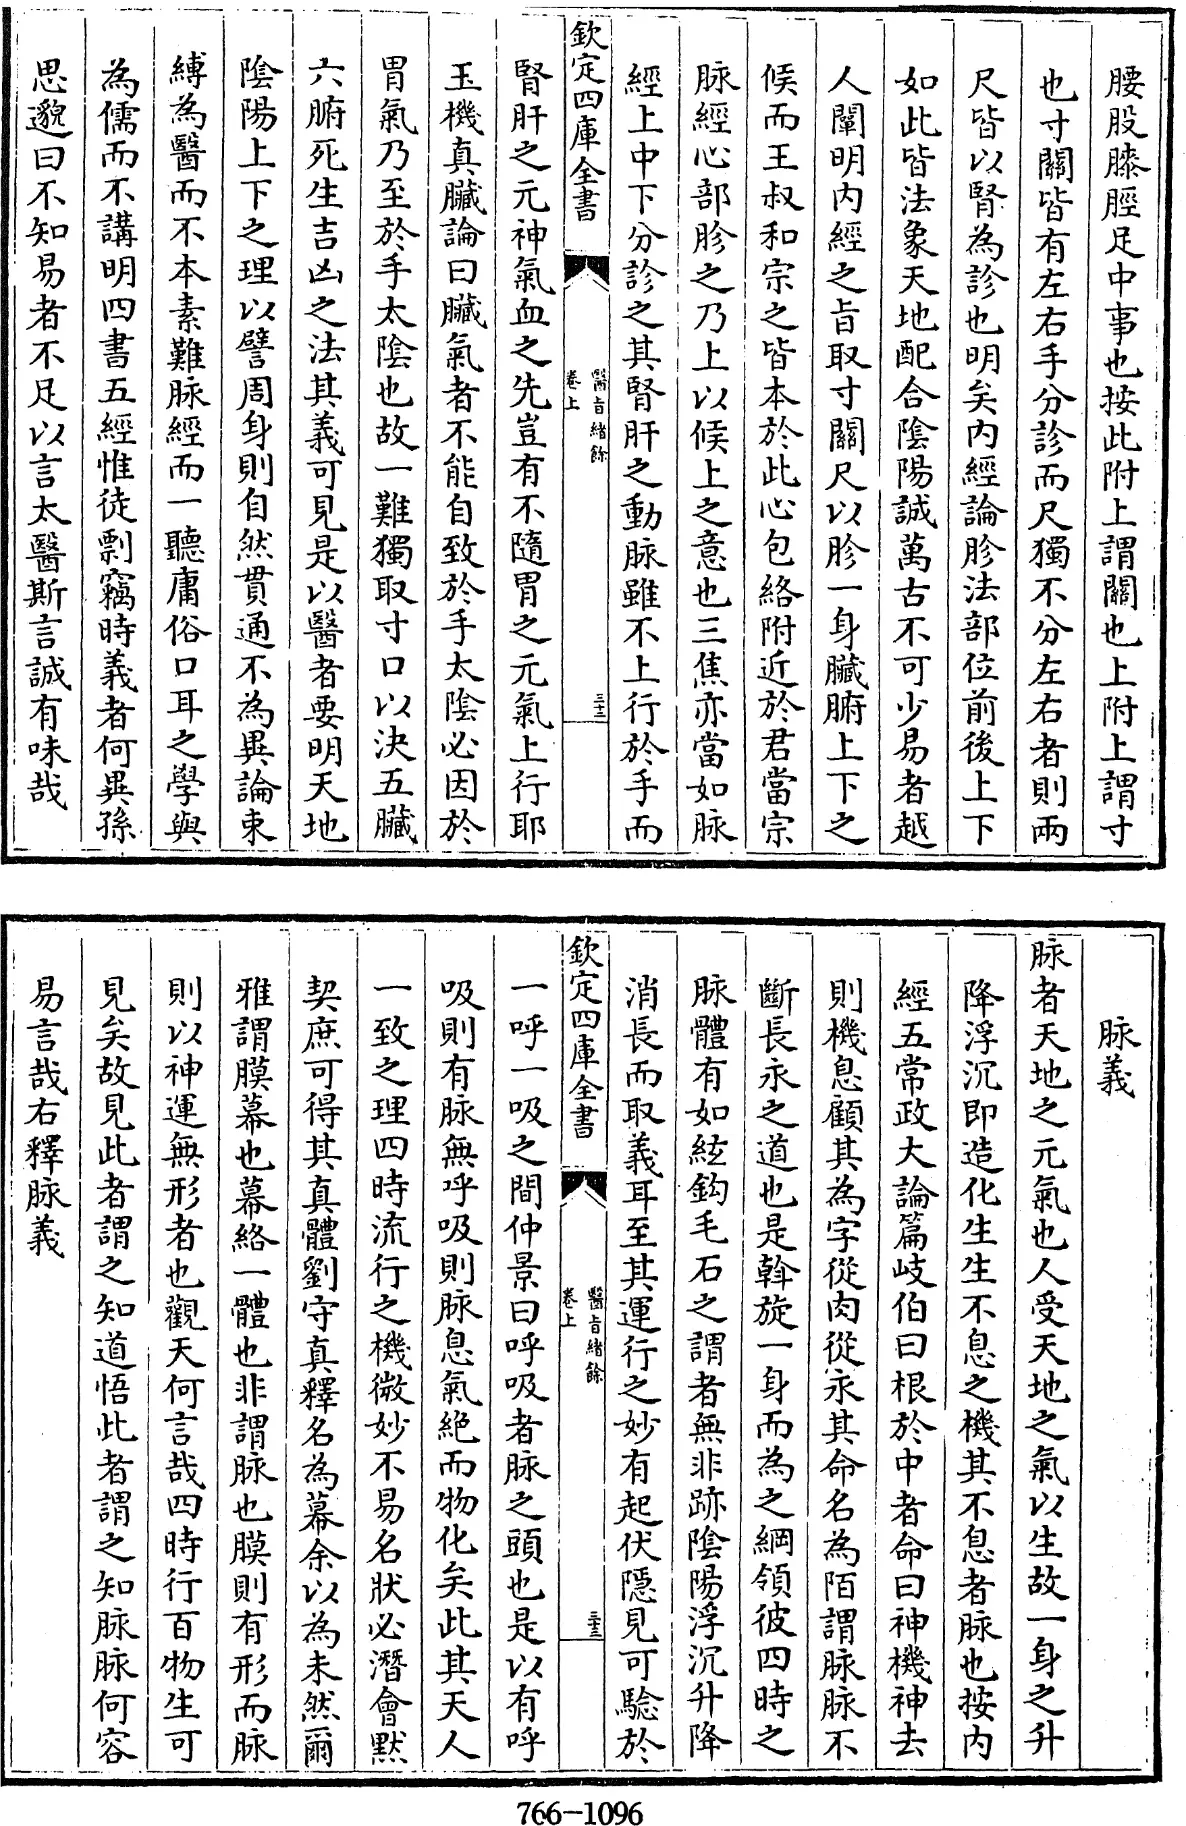 腰股膝脛足中事也按此附上謂關也上附上謂寸
也寸關皆有左右手分診而尺獨不分左右者則兩
尺皆以腎為診也明矣内經論胗法部位前後上下
如此皆法象天地配合陰陽誠萬古不可少易者越
人闡明内經之旨取寸關尺以胗一身臟腑上下之
候而王叔和宗之皆本於此心包絡附近於君當宗
脉經心部胗之乃上以候上之意也三焦亦當如脉
經上中下分診之其腎肝之動脉雖不上行於手而
欽定四庫全書
醫旨緒餘
卷上
三十二
腎肝之元神氣血之先豈有不隨胃之元氣上行耶
玉機真臟論曰臟氣者不能自致於手太陰必因於
胃氣乃至於手太陰也故一難獨取寸口以決五臟
六腑死生吉凶之法其義可見是以醫者要明天地
陰陽上下之理以譬周身則自然貫通不為異論束
縛為醫而不本素難脉經而一聽庸俗口耳之學與
為儒而不講明四書五經惟徒剽竊時義者何異孫
思邈曰不知易者不足以言太醫斯言誠有味哉
脉義
脉者天地之元氣也人受天地之氣以生故一身之升
降浮沉即造化生生不息之機其不息者脉也按内
經五常政大論篇岐伯曰根於中者命曰神機神去
則機息顧其為字從肉從永其命名為陌謂脉脉不
斷長永之道也是斡旋一身而為之綱領彼四時之
脉體有如絃鈎毛石之謂者無非跡陰陽浮沉升降
消長而取義耳至其運行之妙有起伏隱見可驗於
欽定四庫全書
醫旨緒餘
卷上
三十三
一呼一吸之間仲景曰呼吸者脉之頭也是以有呼
吸則有脉無呼吸則脉息氣絶而物化矣此其天人
一致之理四時流行之機微妙不易名狀必潛會黙
契庶可得其真體劉守真釋名為幕余以為未然爾
雅謂膜幕也幕絡一體也非謂脉也膜則有形而脉
則以神運無形者也觀天何言哉四時行百物生可
見矣故見此者謂之知道悟此者謂之知脉脉何容
易言哉右釋脉義
766-1096